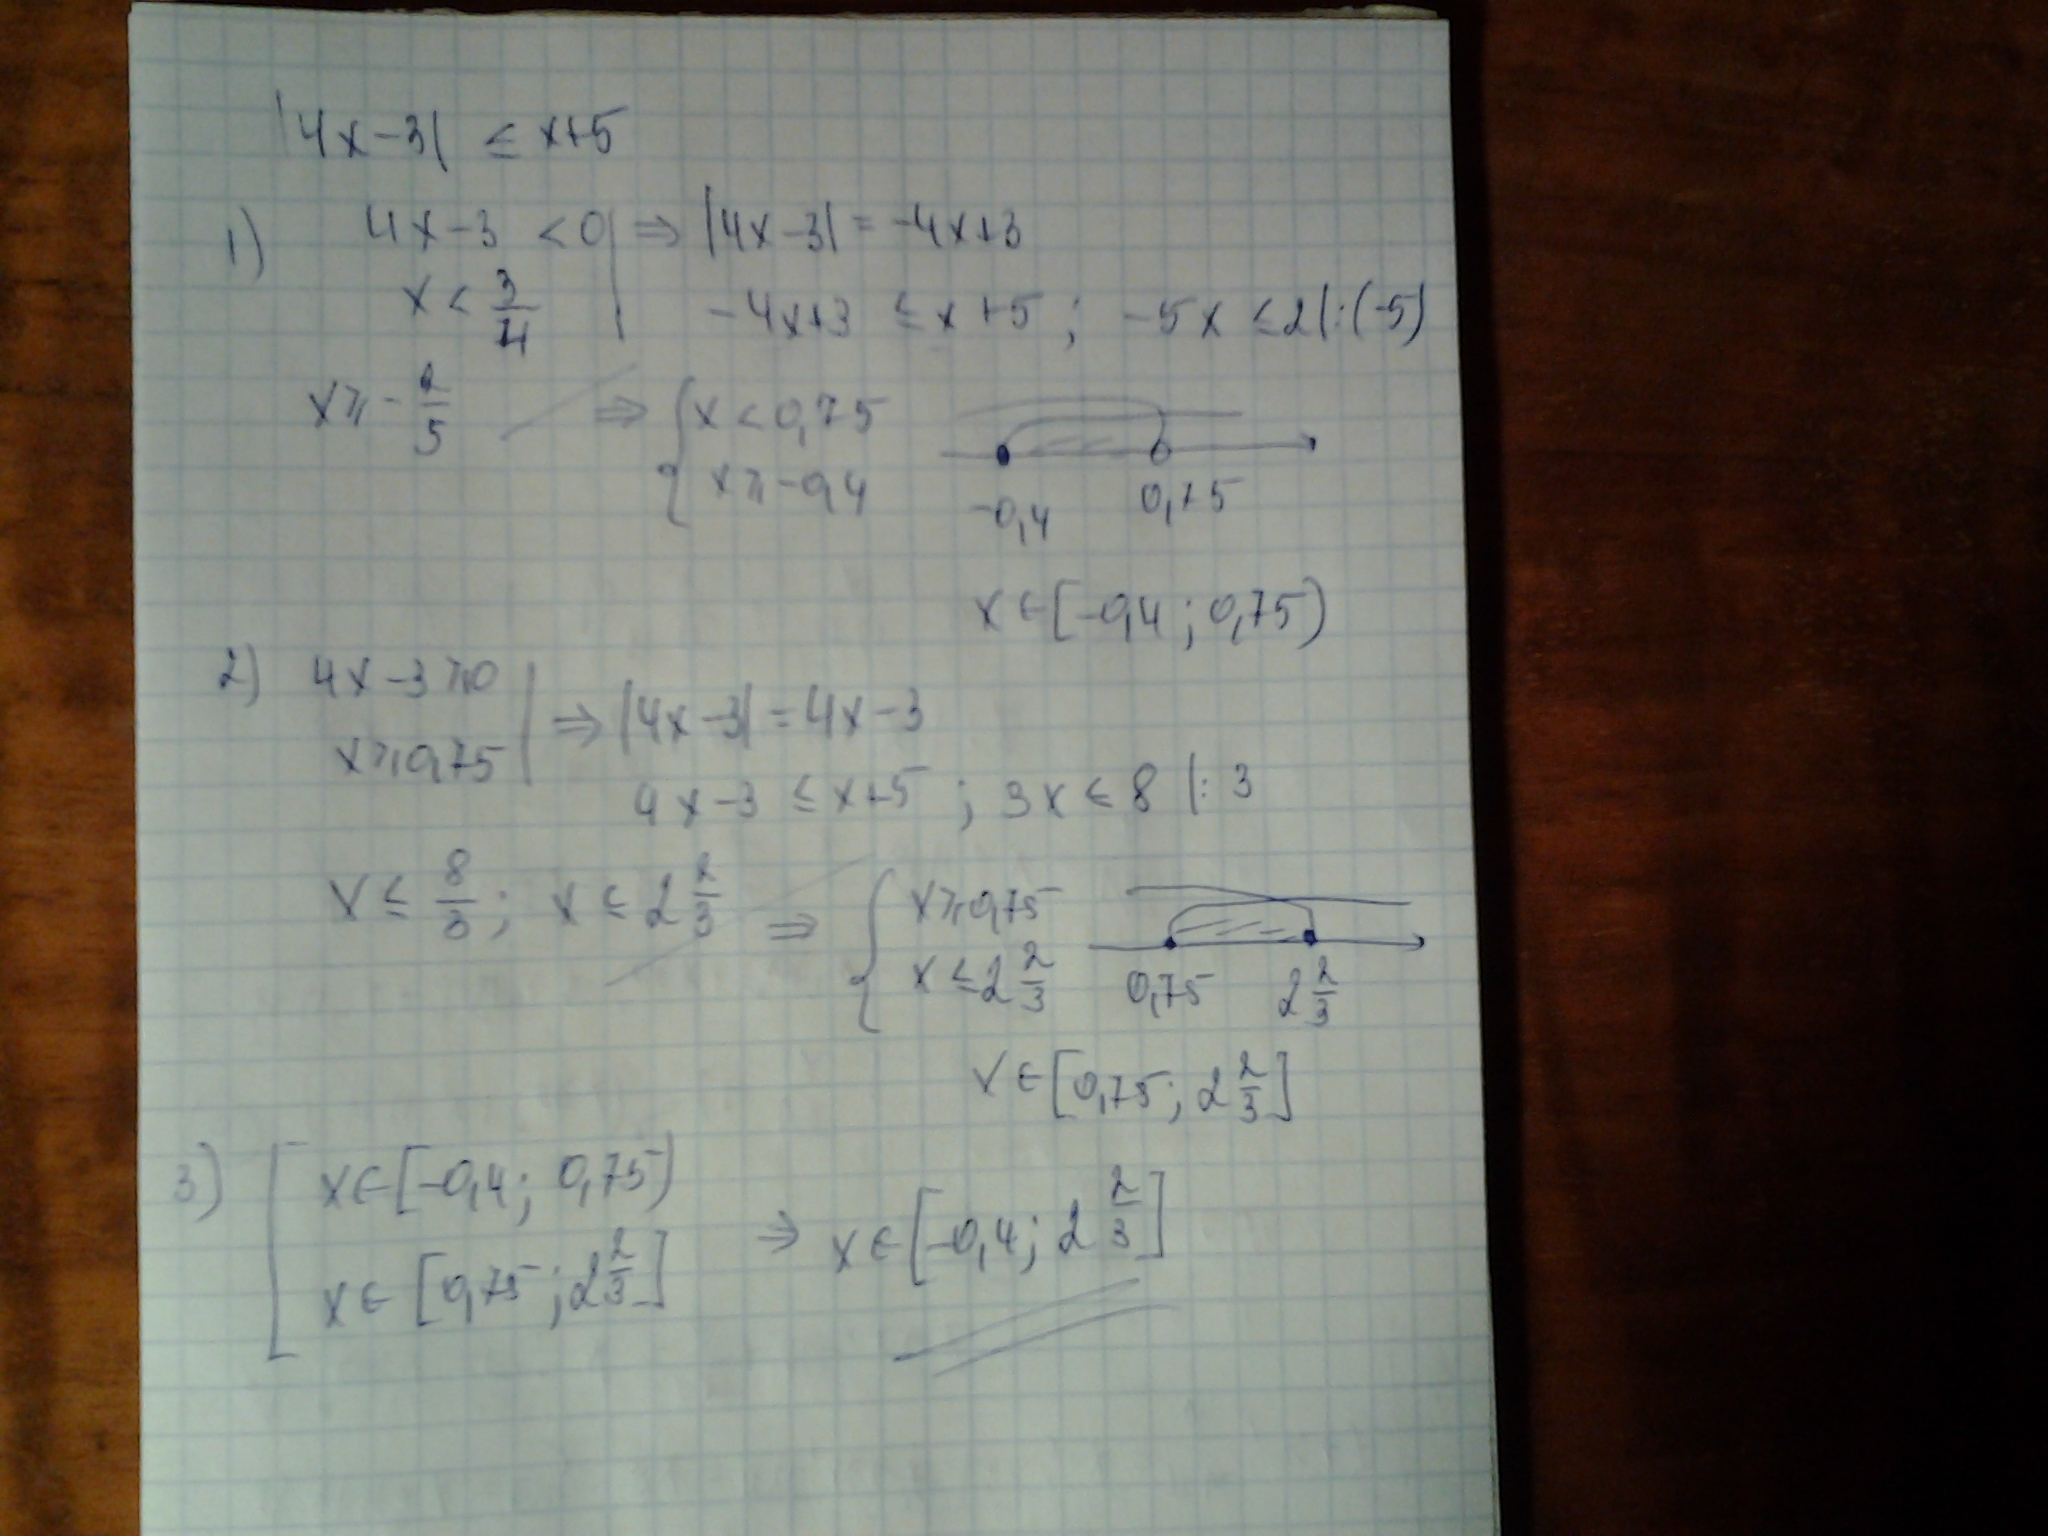 |4x-3| ≤ x+5
1) 4x-3 <0 | ⇒ |4x-3| = -4x+3
x < 3/4 | -4x+3 ≤ x+5 ; -5x ≤ 2 |:(-5)
x ⩾ -2/5 ⇒ { x < 0,75
x ⩾ -0,4
-0,4 0,75
x ∈ [-0,4 ; 0,75)
2) 4x-3 ⩾ 0 | ⇒ |4x-3| = 4x-3
x ⩾ 0,75
4x-3 ≤ x+5 ; 3x ≤ 8 |: 3
x ≤ 8/3 ; x ≤ 2 2/3 ⇒ { x ⩾ 0,75
x ≤ 2 2/3
0,75 2 2/3
x ∈ [0,75 ; 2 2/3]
3) [ x ∈ [-0,4 ; 0,75)
x ∈ [0,75 ; 2 2/3]
⇒ x ∈ [-0,4 ; 2 2/3]